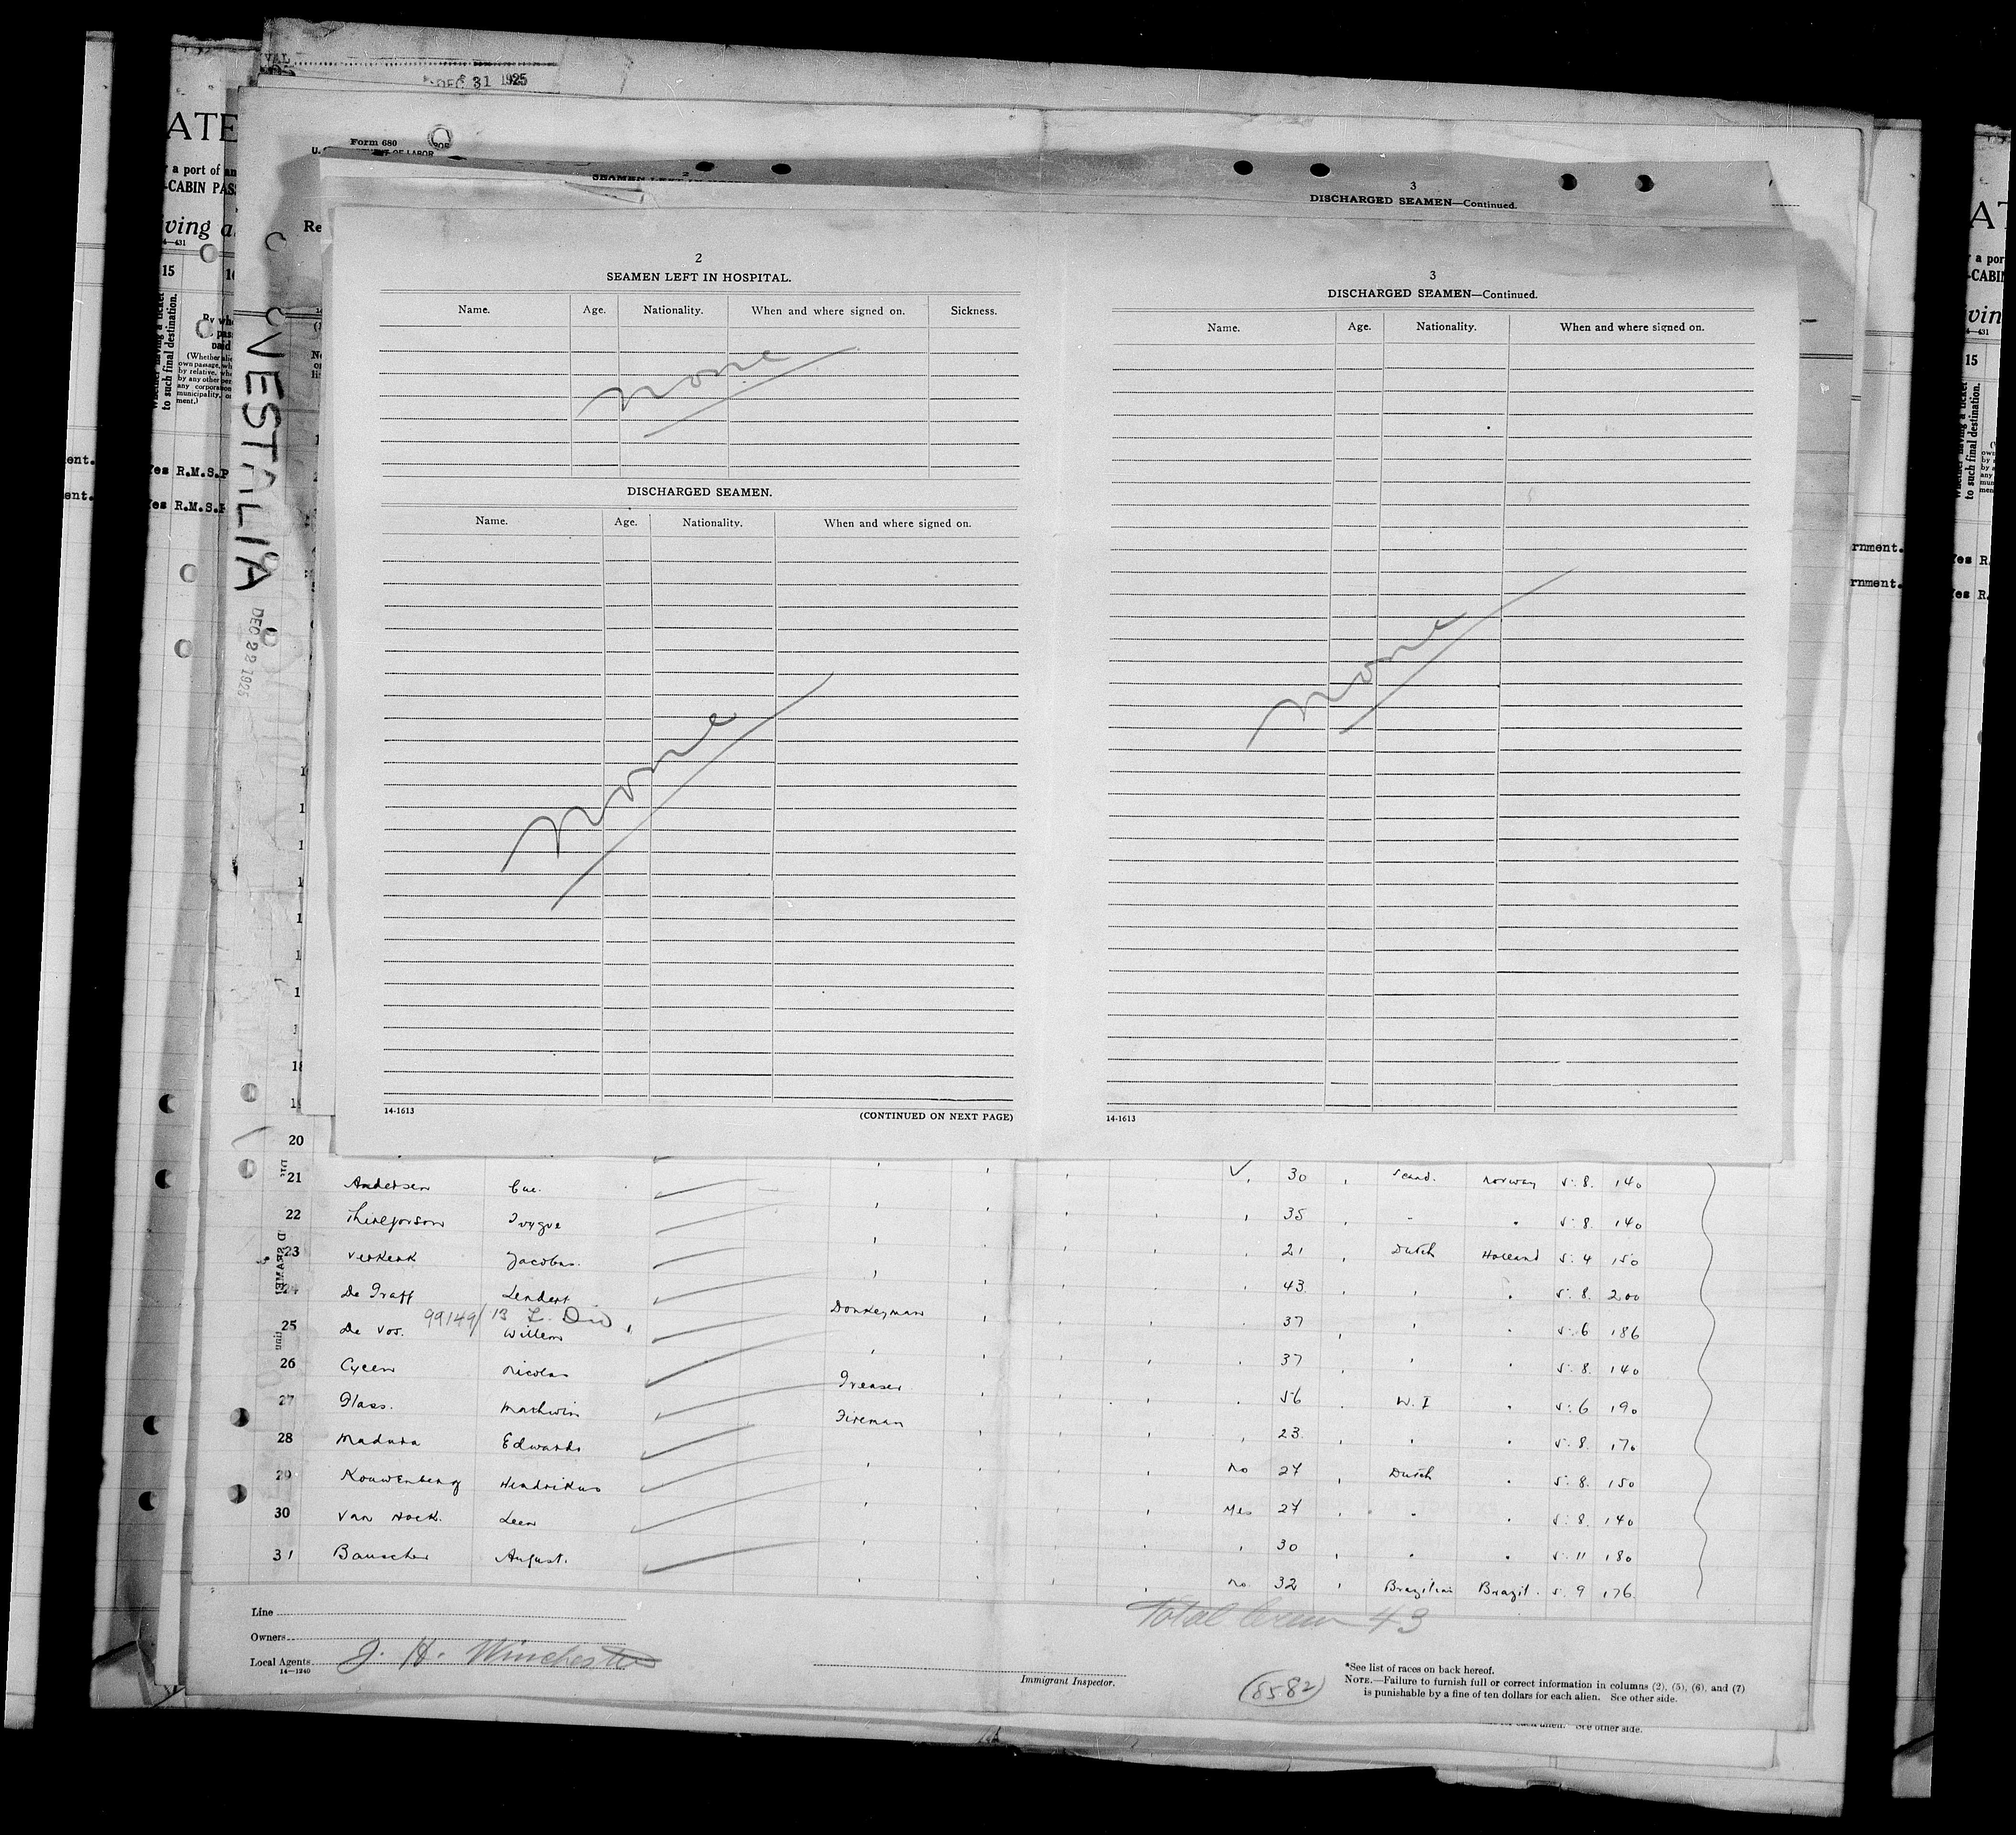 VAL
DEC 31 1925
Form 680
DISCHARGED SEAMEN—Continued.
3
ATE
a port of an
-CABIN PASS
ving a
4—431
15
Whether having a ticket to such final destination.
Yes R.M.S.P
Yes R.M.S.P
VESTALIA
DEC 22 1925
2
SEAMEN LEFT IN HOSPITAL.
Name. Age. Nationality. When and where signed on. Sickness.
None
DISCHARGED SEAMEN.
Name. Age. Nationality. When and where signed on.
None
14-1613 (CONTINUED ON NEXT PAGE)
3
DISCHARGED SEAMEN—Continued.
Name. Age. Nationality. When and where signed on.
None
14-1613
rnment.
rnment.
20
21 Andersen 30 Scand. Norway 5.8. 140
22 35 5.8. 140
23 Verkerk Jacobus. 21 Dutch Holland 5.4 150
24 De Graff Lendert 43 5.8. 200
99149/13
25 De Vos. Willem Donkeyman 37 5.6 186
26 Nicolas 37 5.8. 140
27 Glass. Greaser 56 W. I 5.6 190
28 Madura Edwardo Fireman 23 5.8. 170
29 Kouwenberg Hendrikus No 27 Dutch 5.8. 150
30 Van Hoek. Leen Yes 27 5.8. 140
31 Bauscher August. 30 5.11 180
No 32 Brazilian Brazil. 5.9 176
Total Crew 43
Line
Owners
Local Agents J. H. Winchester
14—1240
Immigrant Inspector.
8582
*See list of races on back hereof.
NOTE.—Failure to furnish full or correct information in columns (2), (5), (6), and (7)
is punishable by a fine of ten dollars for each alien. See other side.
See other side.